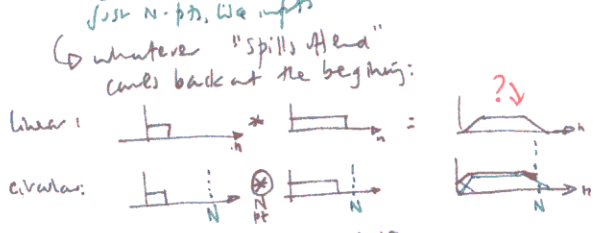 just N-pts, like inputs
↳ whatever "spills ahead"
comes back at the beginning:
linear: n * n = ?↘ n
circular: N ⊛ N N n
N
pt